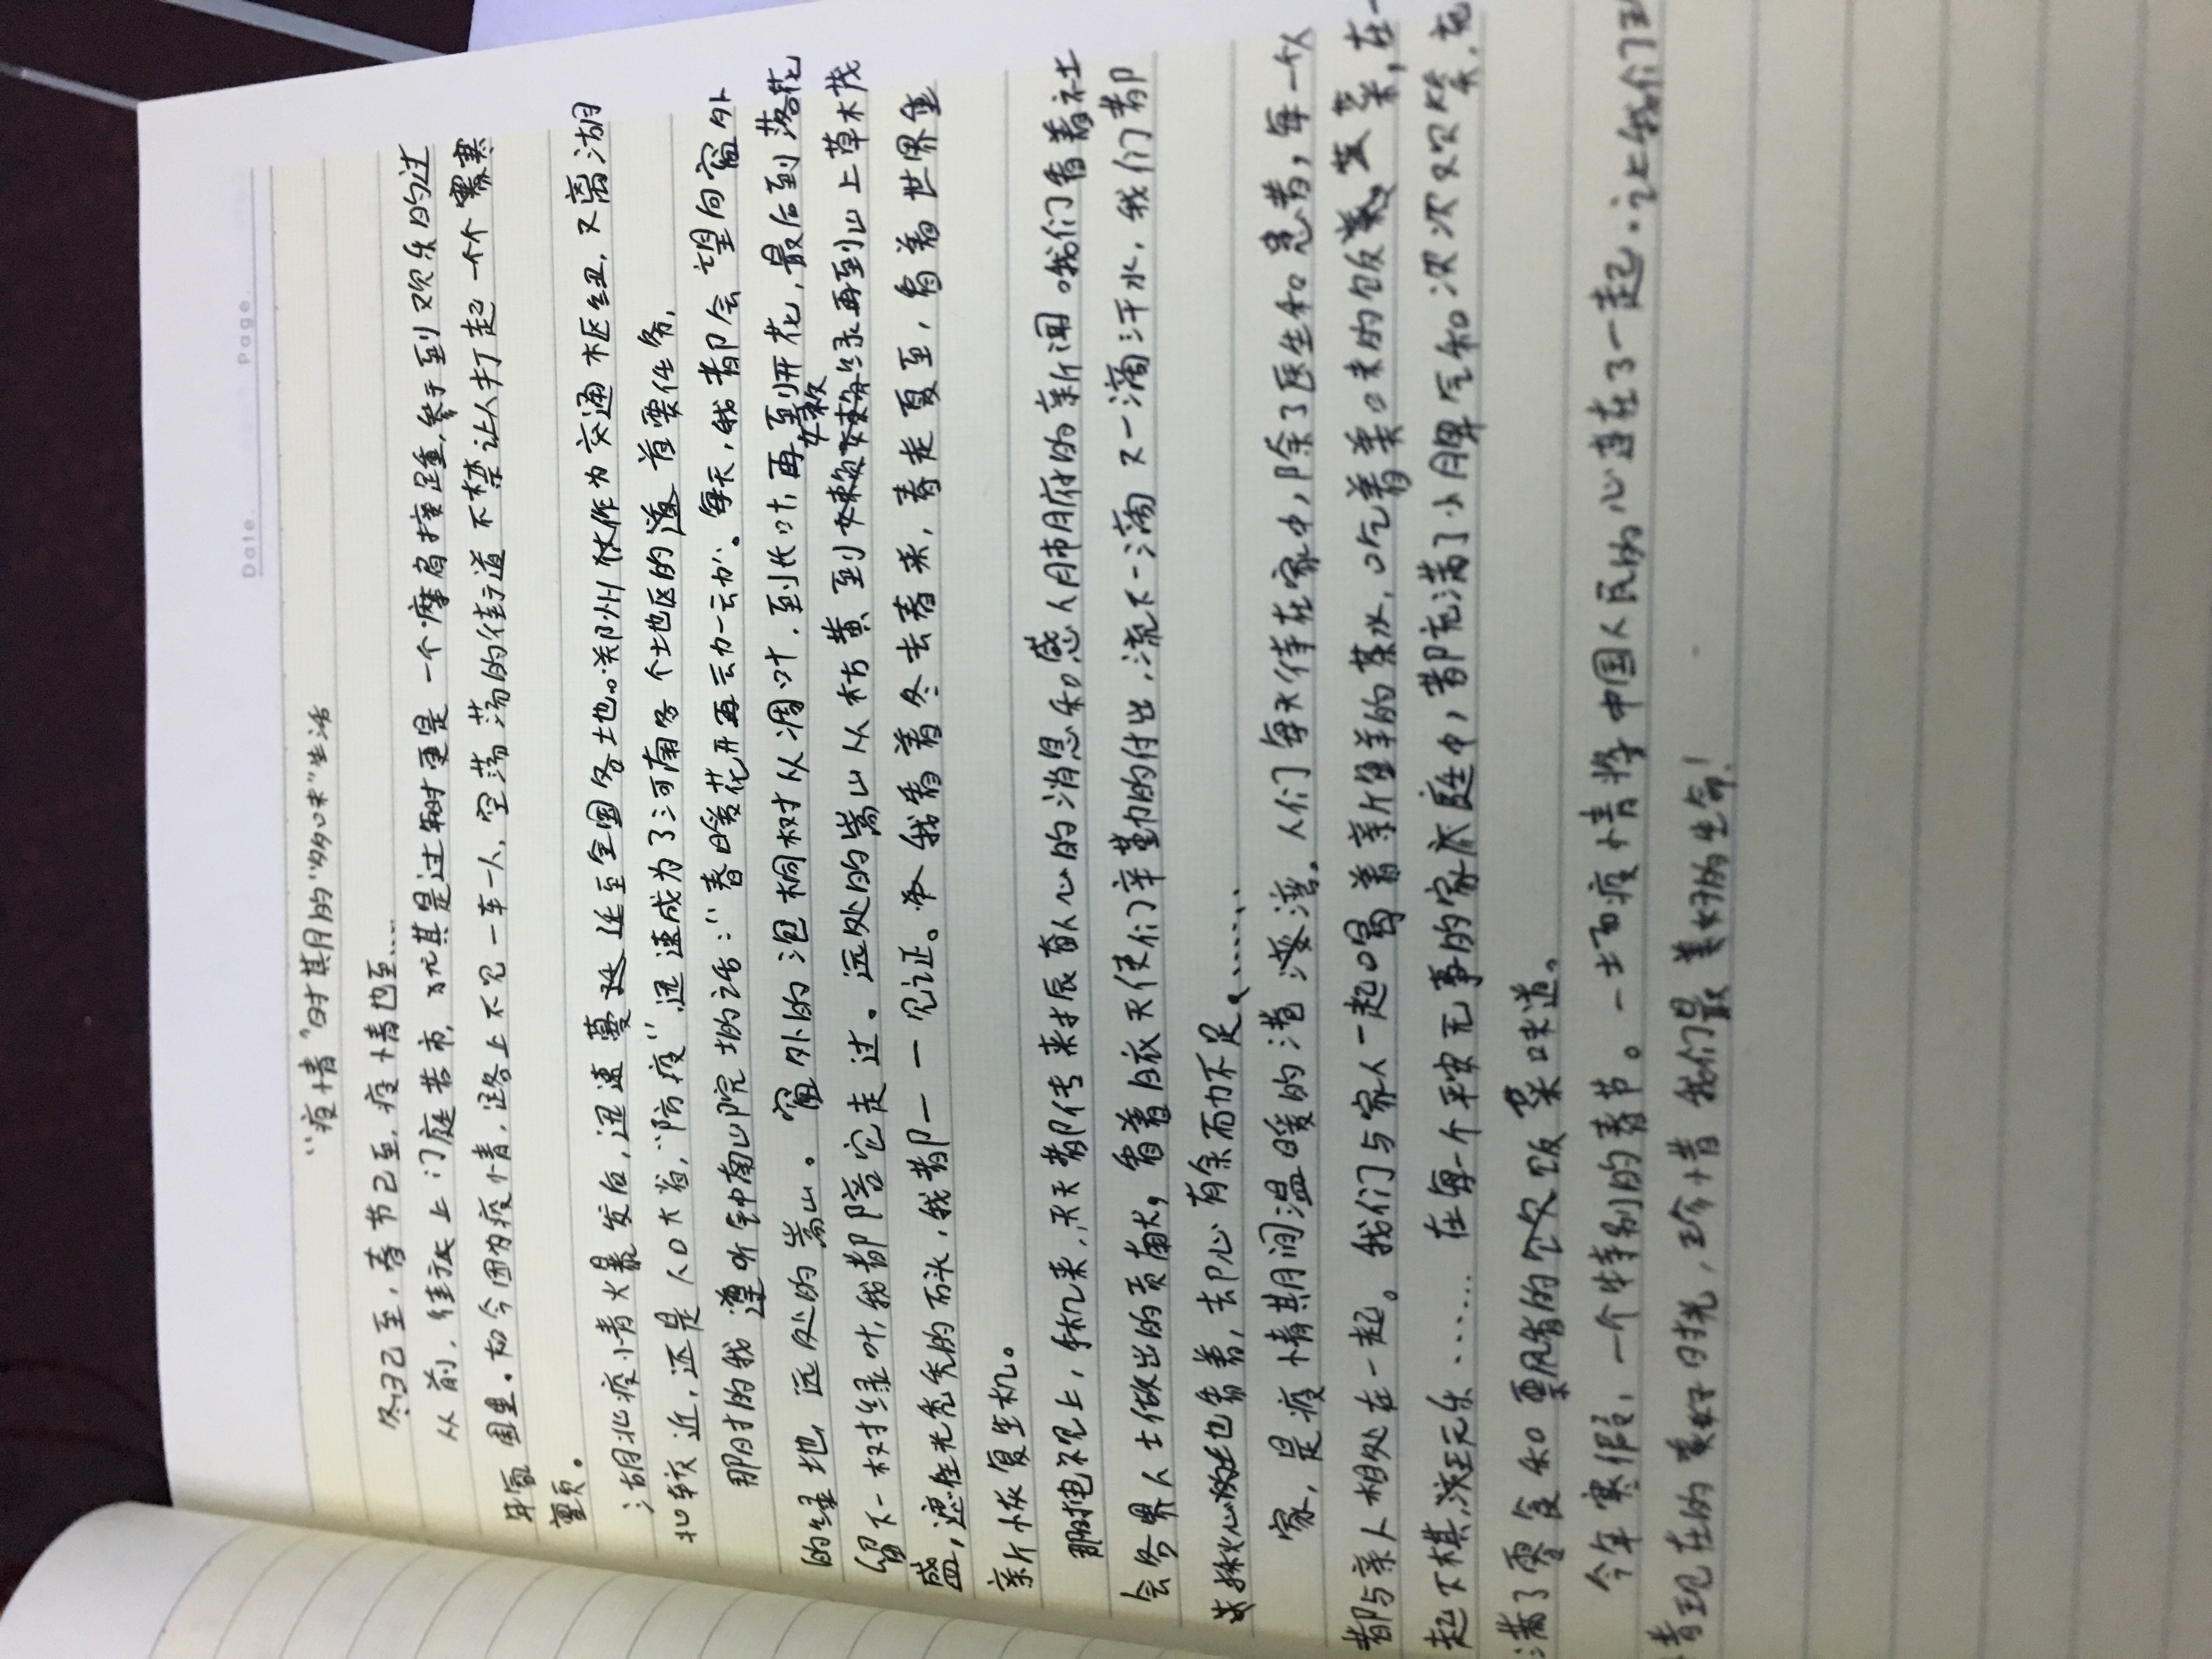 Date. Page.
“疫情”时其月的“别味”生活
冬日已至,春节已至,疫情也至……
从前,街上门庭若市,尤其是过年时更是一个摩肩接踵,终于到欢乐的过
年氛围里。如今因为疫情,路上不见一车一人,空荡荡的街道不禁让人打起一个寒
噩。
湖北疫情火暴发后,迅速蔓延至全国各地。郑州作为交通枢纽,又离湖
北较近,还是人口大省,“防疫”迅速成为了河南各个地区的首要任务,
那时的我遵听钟南山院士的话:“春暖花开再云力一云力”。每天,我都会望向窗外
的绿地,远处的嵩山。窗外的泡桐树从凋叶,到长叶,再到开花,最后到落花
留下一树绿叶,我都陪它走过。远处的嵩山从枯黄至到嫩绿再至到山上草木茂
盛,遮住光秃的石头,我都一一见证。我看着冬去春来,春走夏至,看着世界重
新恢复生机。
那时电视上,手机来,天天都传来振奋人心的消息和感人肺腑的新闻。我们看着社
会各界人士做出的贡献,看着白衣天使们辛勤的付出,流下一滴又一滴汗水,我们都
也看着,去却心有余而力不足……
家,是疫情其月间温暖的港湾。人们每天待在家中,除了医生和患者,每一个人
都与亲人相处在一起。我们与家人一起喝着新鲜的菜水,吃着美味的饭菜,在一
起下棋,淡玩乐……在每一个平安无事的家庭中,都充满了小脾气和一次次欢笑,充
满了零食和飘香的饭菜味道。
今年寒假,一个特别的春节。一场疫情将中国人民的心连在了一起。让我们
着现在的美好时光,珍惜我们最美好的生命!